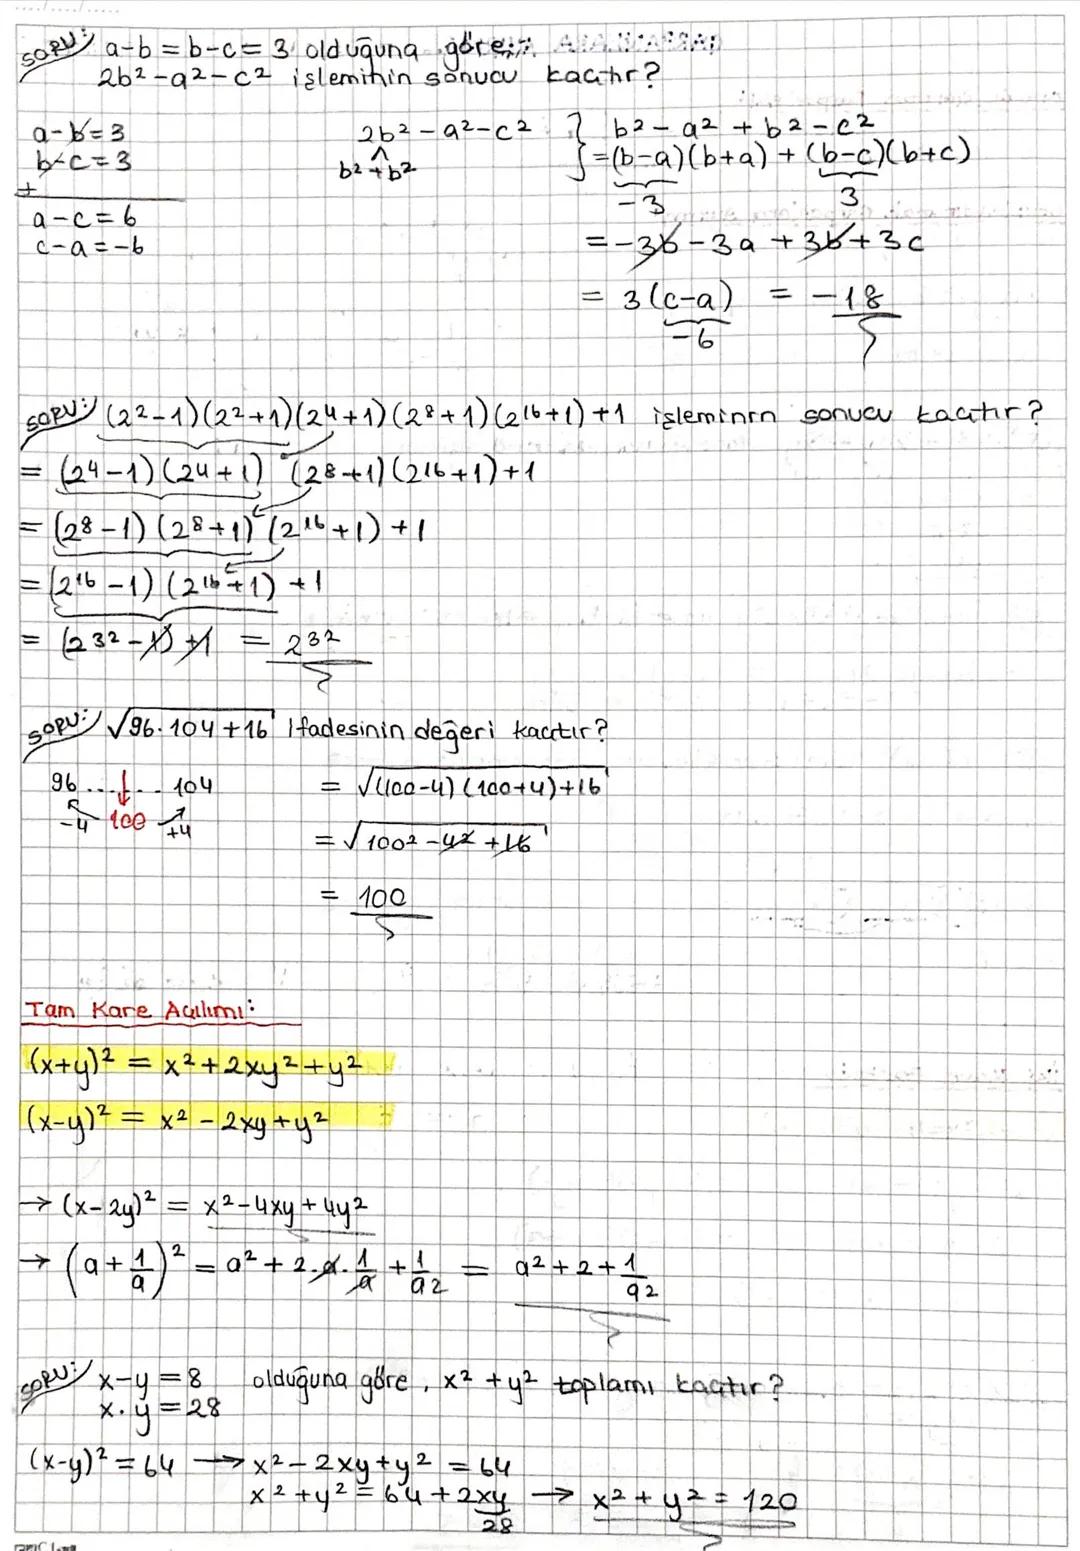 SORU: a-b = b-c = 3 olduğuna göre;
2b² - a² - c² işleminin sonucu kaçtır?
a-b=3
b-c=3
+
a-c=6
c-a=-6
2b² - a² - c²
b² + b²
b² - a² + b² - c²
=(b-a)(b+a) + (b-c)(b+c)
-3 3
= -3b - 3a + 3b + 3c
= 3(c-a) = -18
-6
SORU: (2²-1)(2²+1)(2⁴+1)(2⁸+1)(2¹⁶+1)+1 işleminin sonucu kaçtır?
= (2⁴-1)(2⁴+1)(2⁸+1)(2¹⁶+1)+1
= (2⁸-1)(2⁸+1)(2¹⁶+1)+1
= (2¹⁶-1)(2¹⁶+1)+1
= (2³²-1)+1 = 2³²
SORU: √96.104+16 ifadesinin değeri kaçtır?
96 ... ... 104
-4 100 +4
= √(100-4)(100+4)+16
= √100² - 4² + 16
= 100
Tam Kare Açılımı:
(x+y)² = x² + 2xy² + y²
(x-y)² = x² - 2xy + y²
→ (x-2y)² = x² - 4xy + 4y²
→ (a + 1/a)² = a² + 2.a.1/a + 1/a² = a² + 2 + 1/a²
SORU: x-y=8 olduğuna göre, x² + y² toplamı kaçtır?
x.y=28
(x-y)² = 64 → x² - 2xy + y² = 64
x² + y² = 64 + 2xy → x² + y² = 120
28